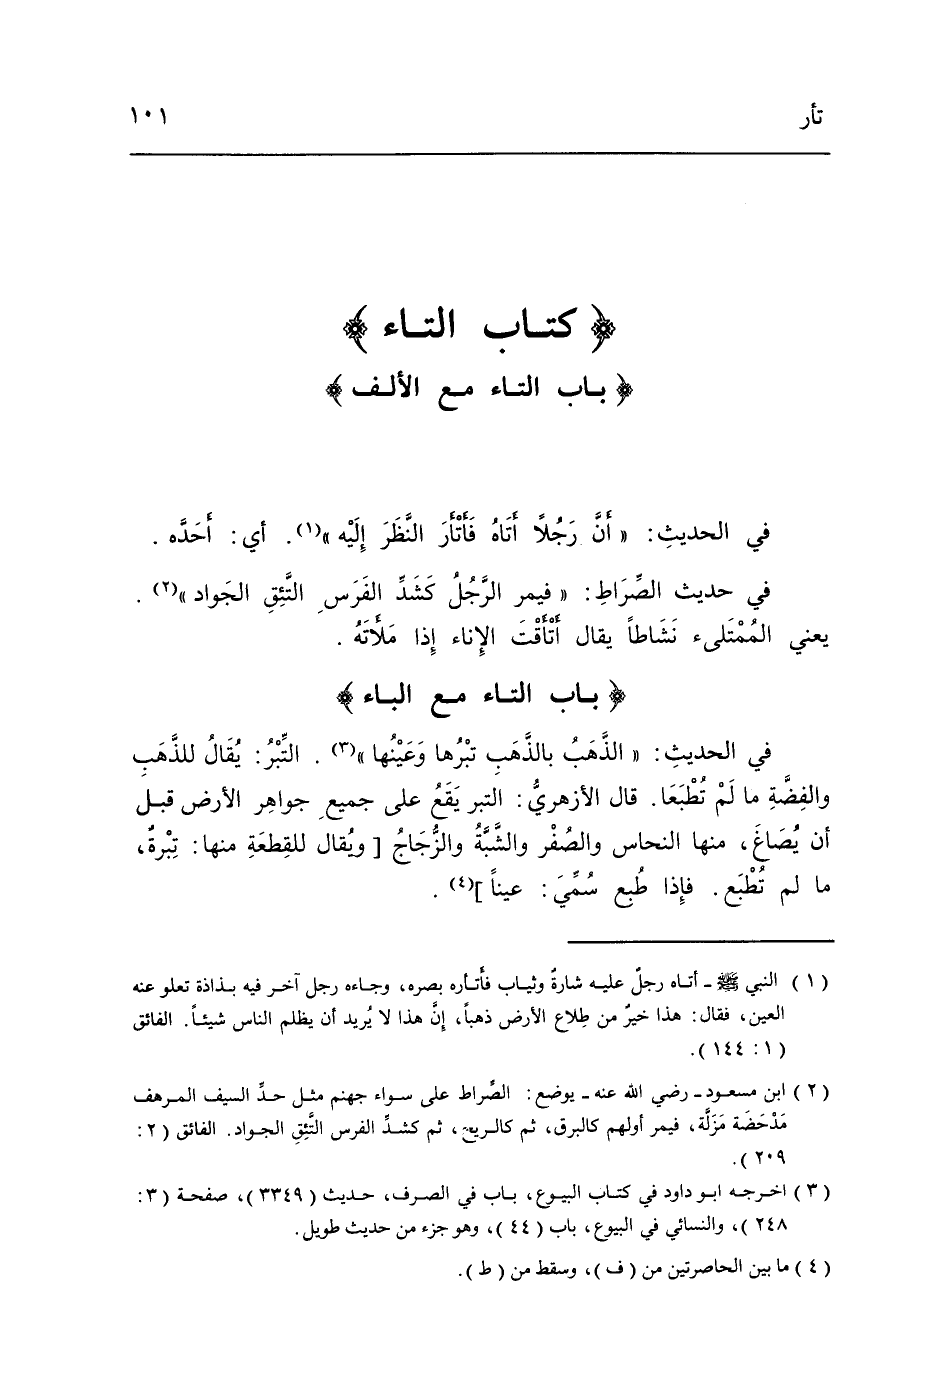 تأر
١٠١
﴿ كتـاب التـاء ﴾
﴿ بـاب التـاء مـع الألـف ﴾
في الحديثِ: « أَنَّ رَجُلًا أَتَاهُ فَأَتْأَرَ النَّظَرَ إِلَيْه »(١). أي: أَحَدَّه .
في حديث الصِّرَاطِ: « فيمر الرَّجُلُ كَشَدِّ الفَرَسِ التَّئِقِ الجَواد »(٢) .
يعني المُمْتَلىء نَشَاطاً يقال أَتْأَقْتَ الإِناء إِذا مَلأَتَهُ .
﴿ بـاب التـاء مـع البـاء ﴾
في الحديثِ: « الذَّهَبُ بالذَّهَبِ تبْرُها وَعَيْنُها »(٣) . التِّبْرُ: يُقَالُ للذَّهَبِ
والفِضَّةِ ما لَمْ تُطْبَعَا. قال الأزهريُّ: التبر يَقَعُ على جميعِ جواهِر الأرض قبـل
أن يُصَاغَ، منها النحاس والصُفْر والشَّبَّةُ والزُّجَاجُ [ ويُقال للقِطعَةِ منها: تِبْرةٌ،
ما لم تُطْبَع. فإِذا طُبِع سُمِّيَ: عيناً ](٤) .
( ١ ) النبي ﷺ ـ أتـاه رجلٌ عليـه شارةٌ وثيـاب فأَتـأره بصره، وجـاءه رجل آخـر فيه بـذاذة تعلو عنه
العين، فقال: هذا خيرٌ من طِلاع الأرض ذهباً، إنَّ هذا لا يُريد أن يظلم الناس شيئـاً. الفائق
( ١ : ١٤٤ ).
( ٢ ) ابن مسعـود ـ رضي الله عنه ـ يوضع: الصِّراط على سـواء جهنم مثـل حـدِّ السيف المـرهف
مَدْحَضَة مَزَلَّة، فيمر أولهم كالبرق، ثم كالـريح، ثم كشـدِّ الفرس التَّئِقِ الجـواد. الفائق ( ٢ :
٢٠٩ ).
( ٣ ) اخـرجـه ابـو داود في كتـاب البيـوع، بـاب في الصـرف، حـديث ( ٣٣٤٩ )، صفحـة ( ٣ :
٢٤٨ )، والنسائي في البيوع، باب ( ٤٤ )، وهو جزء من حديث طويل.
( ٤ ) ما بين الحاصرتين من ( ف )، وسقط من ( ط ).